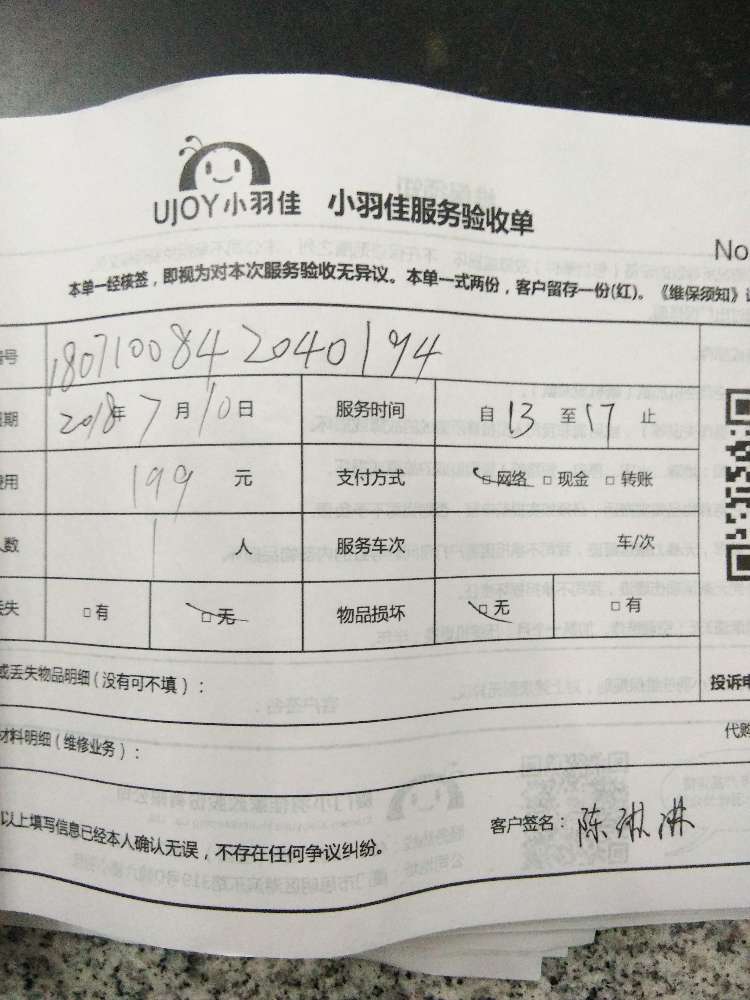 UJOY小羽佳 小羽佳服务验收单
No
本单一经核签，即视为对本次服务验收无异议。本单一式两份，客户留存一份(红)。《维保须知》
号 1807100842040194
期 2018年7月10日 服务时间 自13至17止
用 199 元 支付方式 □网络 □现金 □转账
人数 1 人 服务车次 车/次
失 □有 □无 物品损坏 □无 □有
或丢失物品明细（没有可不填）：
投诉电
材料明细（维修业务）：
代购
以上填写信息已经本人确认无误，不存在任何争议纠纷。
客户签名：陈琳淋